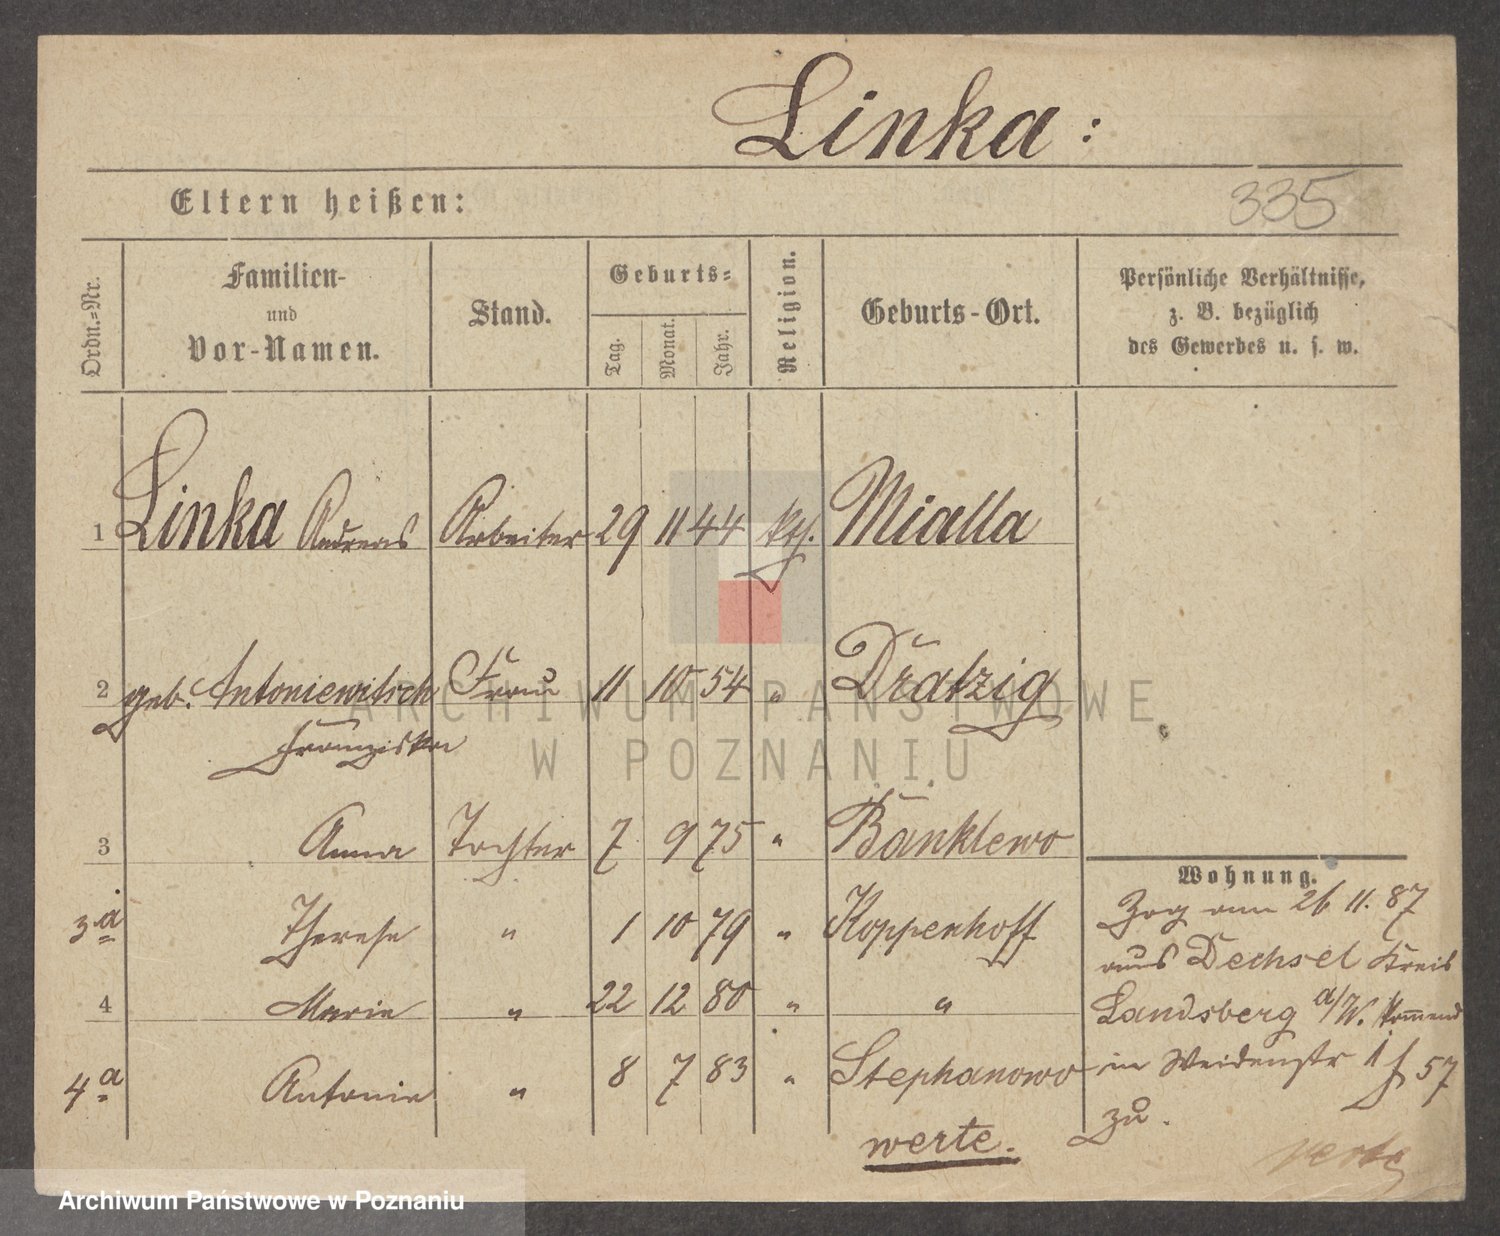 Linka:
Eltern heißen:
335
Ordn.-Nr.
Familien-
und
Vor-Namen.
Stand.
Geburts-
Tag.
Monat.
Jahr.
Religion.
Geburts-Ort.
Persönliche Verhältnisse,
z. B. bezüglich
des Gewerbes u. s. w.
1 Linka Andreas Arbeiter 29 11 44 kth. Mialla
2 geb. Antoniewitsch Frau 11 10 54 " Dratzig
Franziska
3 Anna Tochter 7 9 75 " Banklewo
3a Therese " 1 10 79 " Koppenhoff
4 Marie " 22 12 80 " "
4a Antonie " 8 7 83 " Stephanowo
werte.
Wohnung.
Zog am 26 11. 87
aus Dechsel Kreis
Landsberg a/W. kommend
in Weidenstr 1 f 57
zu.
verte
ARCHIWUM PAŃSTWOWE
W POZNANIU
Archiwum Państwowe w Poznaniu